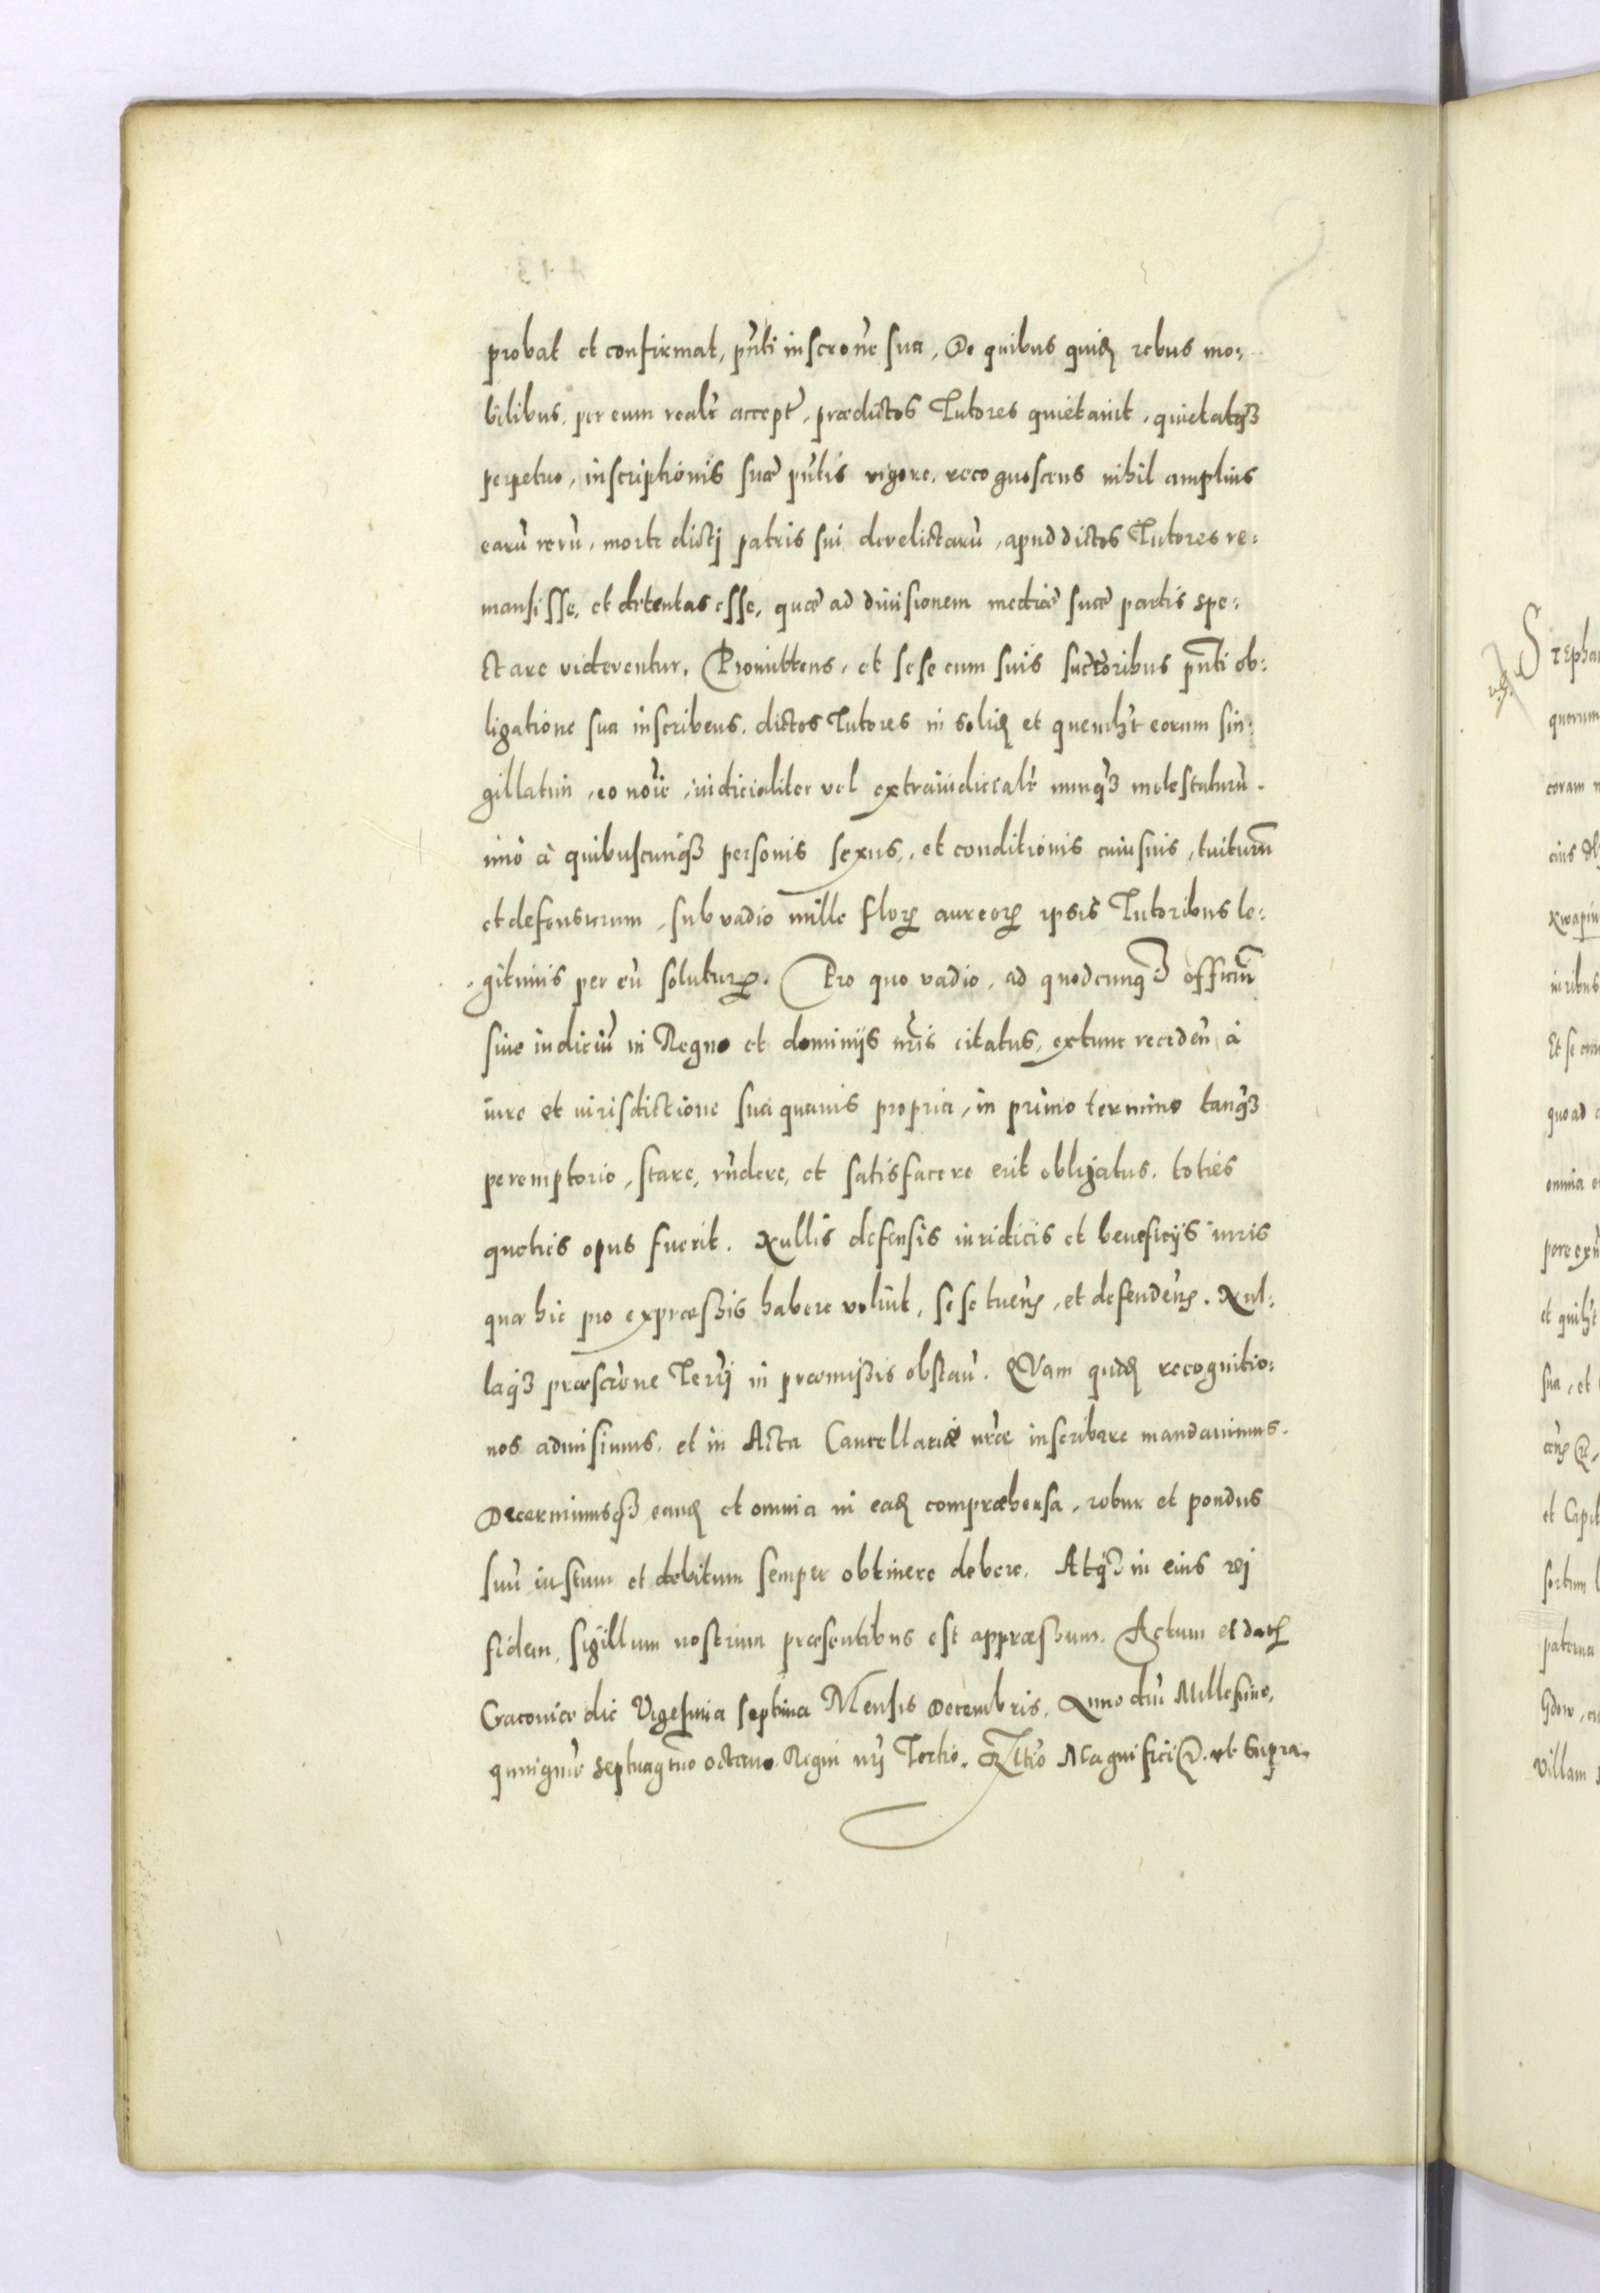 probat et confirmat, pñti inscrõne sua. De quibus quid rebus mo:
bilibus, per eum realr̃ accept̃, prædictos Tutores quietavit, quietatqʒ
perpetuo, inscriptionis suæ pñtis vigore, recognoscens nihil amplius
earũ rerũ, morte dictj patris sui derelictarũ, apud dictos Tutores re:
mansisse, et detentas esse, quæ ad divisionem mediæ suæ partis spe:
ctare viderentur. Promittens, et sese cum suis succẽoribus pñti ob:
ligatione sua inscribens, dictos Tutores in solid et quemlt eorum sin:
gillatim, eo noĩe, iudicialiter vel extraiudicialr̃ nunqʒ molestaturũ.
imò à quibuscunqʒ personis sexus, et conditionis cuiusuis, tuiturum
et defensurum, sub vadio mille floꝝ aureoꝝ ipsis Tutoribus le:
gitimis per eũ soluturꝝ. Pro quo vadio, ad quodcunqʒ officiũ
siue iudiciũ in Regno et dominijs nr̃is citatus, extunc recedeñ à
iure et iurisdictione sua quauis propria, in primo termino tanqʒ
peremptorio, stare, rñdere, et satisfacere erit obligatus, toties
quoties opus fuerit. Nullis defensis iuridicis et beneficijs iuris
quæ hic pro expræssis habere voluit, sese tuens, et defendens. Nul:
laqʒ præscrõne Terrj in præmissis obstañ. Quam quid recognitio:
nos admisimus, et in Acta Cancellariæ nr̃æ inscribere mandauimus.
Decernimusqʒ eand et omnia in ead compræhensa, robur et pondus
suũ iustum et debitum semper obtinere debere. Atqʒ in eius rej
fidem, sigillum nostrum præsentibus est appræssum. Actum et dat
Cracoviæ die Vigesima septima Mensis Decembris. Anno dñi Millesimo,
quingñto septuagmo octauo. Regni nrj Tertio. Rltĩo Magnifici &. ut supra.